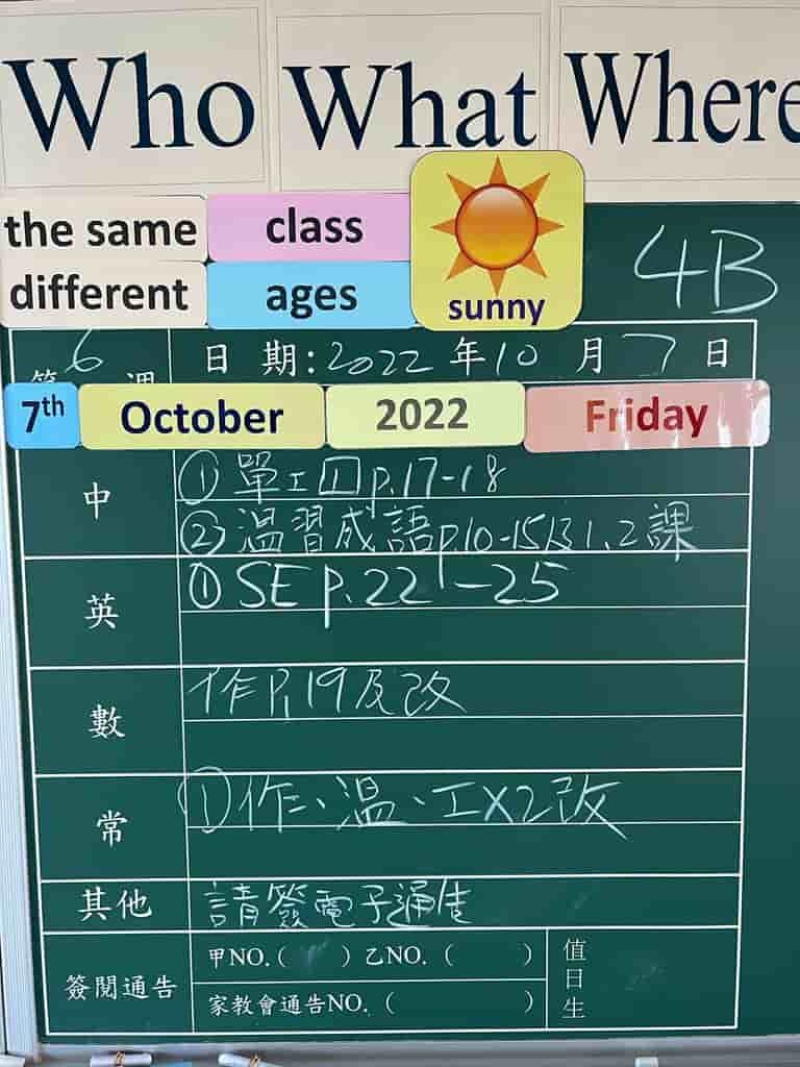 Who What Where
the same class
different ages
sunny
4B
第 6 週 日 期:2022 年 10 月 7 日
7th October 2022 Friday
中 ① 單工四p.17-18
② 温習成語p.10-15及1,2課
英 ① SE p.22-25
數 作P.19及改
常 ①作、温、工X2改
其他 請簽電子通告
簽閱通告 甲NO.( ) 乙NO. ( ) 值日生
家教會通告NO. ( )